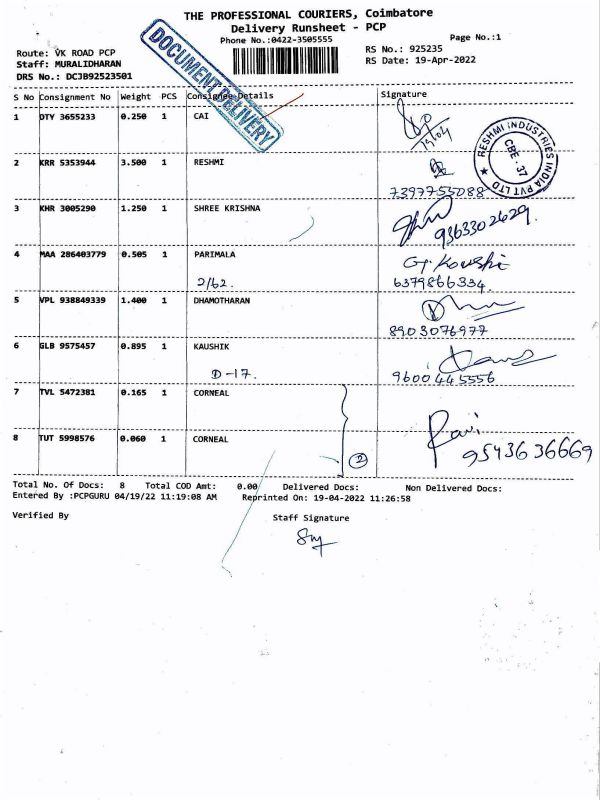 THE PROFESSIONAL COURIERS, Coimbatore
Delivery Runsheet - PCP
Phone No.:0422-3505555
Page No.:1
Route: VK ROAD PCP
RS No.: 925235
Staff: MURALIDHARAN
RS Date: 19-Apr-2022
DRS No.: DCJB92523501
DOCUMENT DELIVERY
S No Consignment No Weight PCS Consignee Details Signature
1 DTY 3655233 0.250 1 CAI
19/04
RESHMI INDUSTRIES INDIA PVT LTD
CBE - 37
2 KRR 5353944 3.500 1 RESHMI
7397755088
3 KHR 3005290 1.250 1 SHREE KRISHNA
9363302629.
4 MAA 286403779 0.505 1 PARIMALA
2/62.
6379866334.
5 VPL 938849339 1.400 1 DHAMOTHARAN
8903076977
6 GLB 9575457 0.895 1 KAUSHIK
D-17.
9600445556
7 TVL 5472381 0.165 1 CORNEAL
8 TUT 5998576 0.060 1 CORNEAL
2
Ravi
9543636669
Total No. Of Docs: 8 Total COD Amt: 0.00 Delivered Docs: Non Delivered Docs:
Entered By :PCPGURU 04/19/22 11:19:08 AM Reprinted On: 19-04-2022 11:26:58
Verified By
Staff Signature